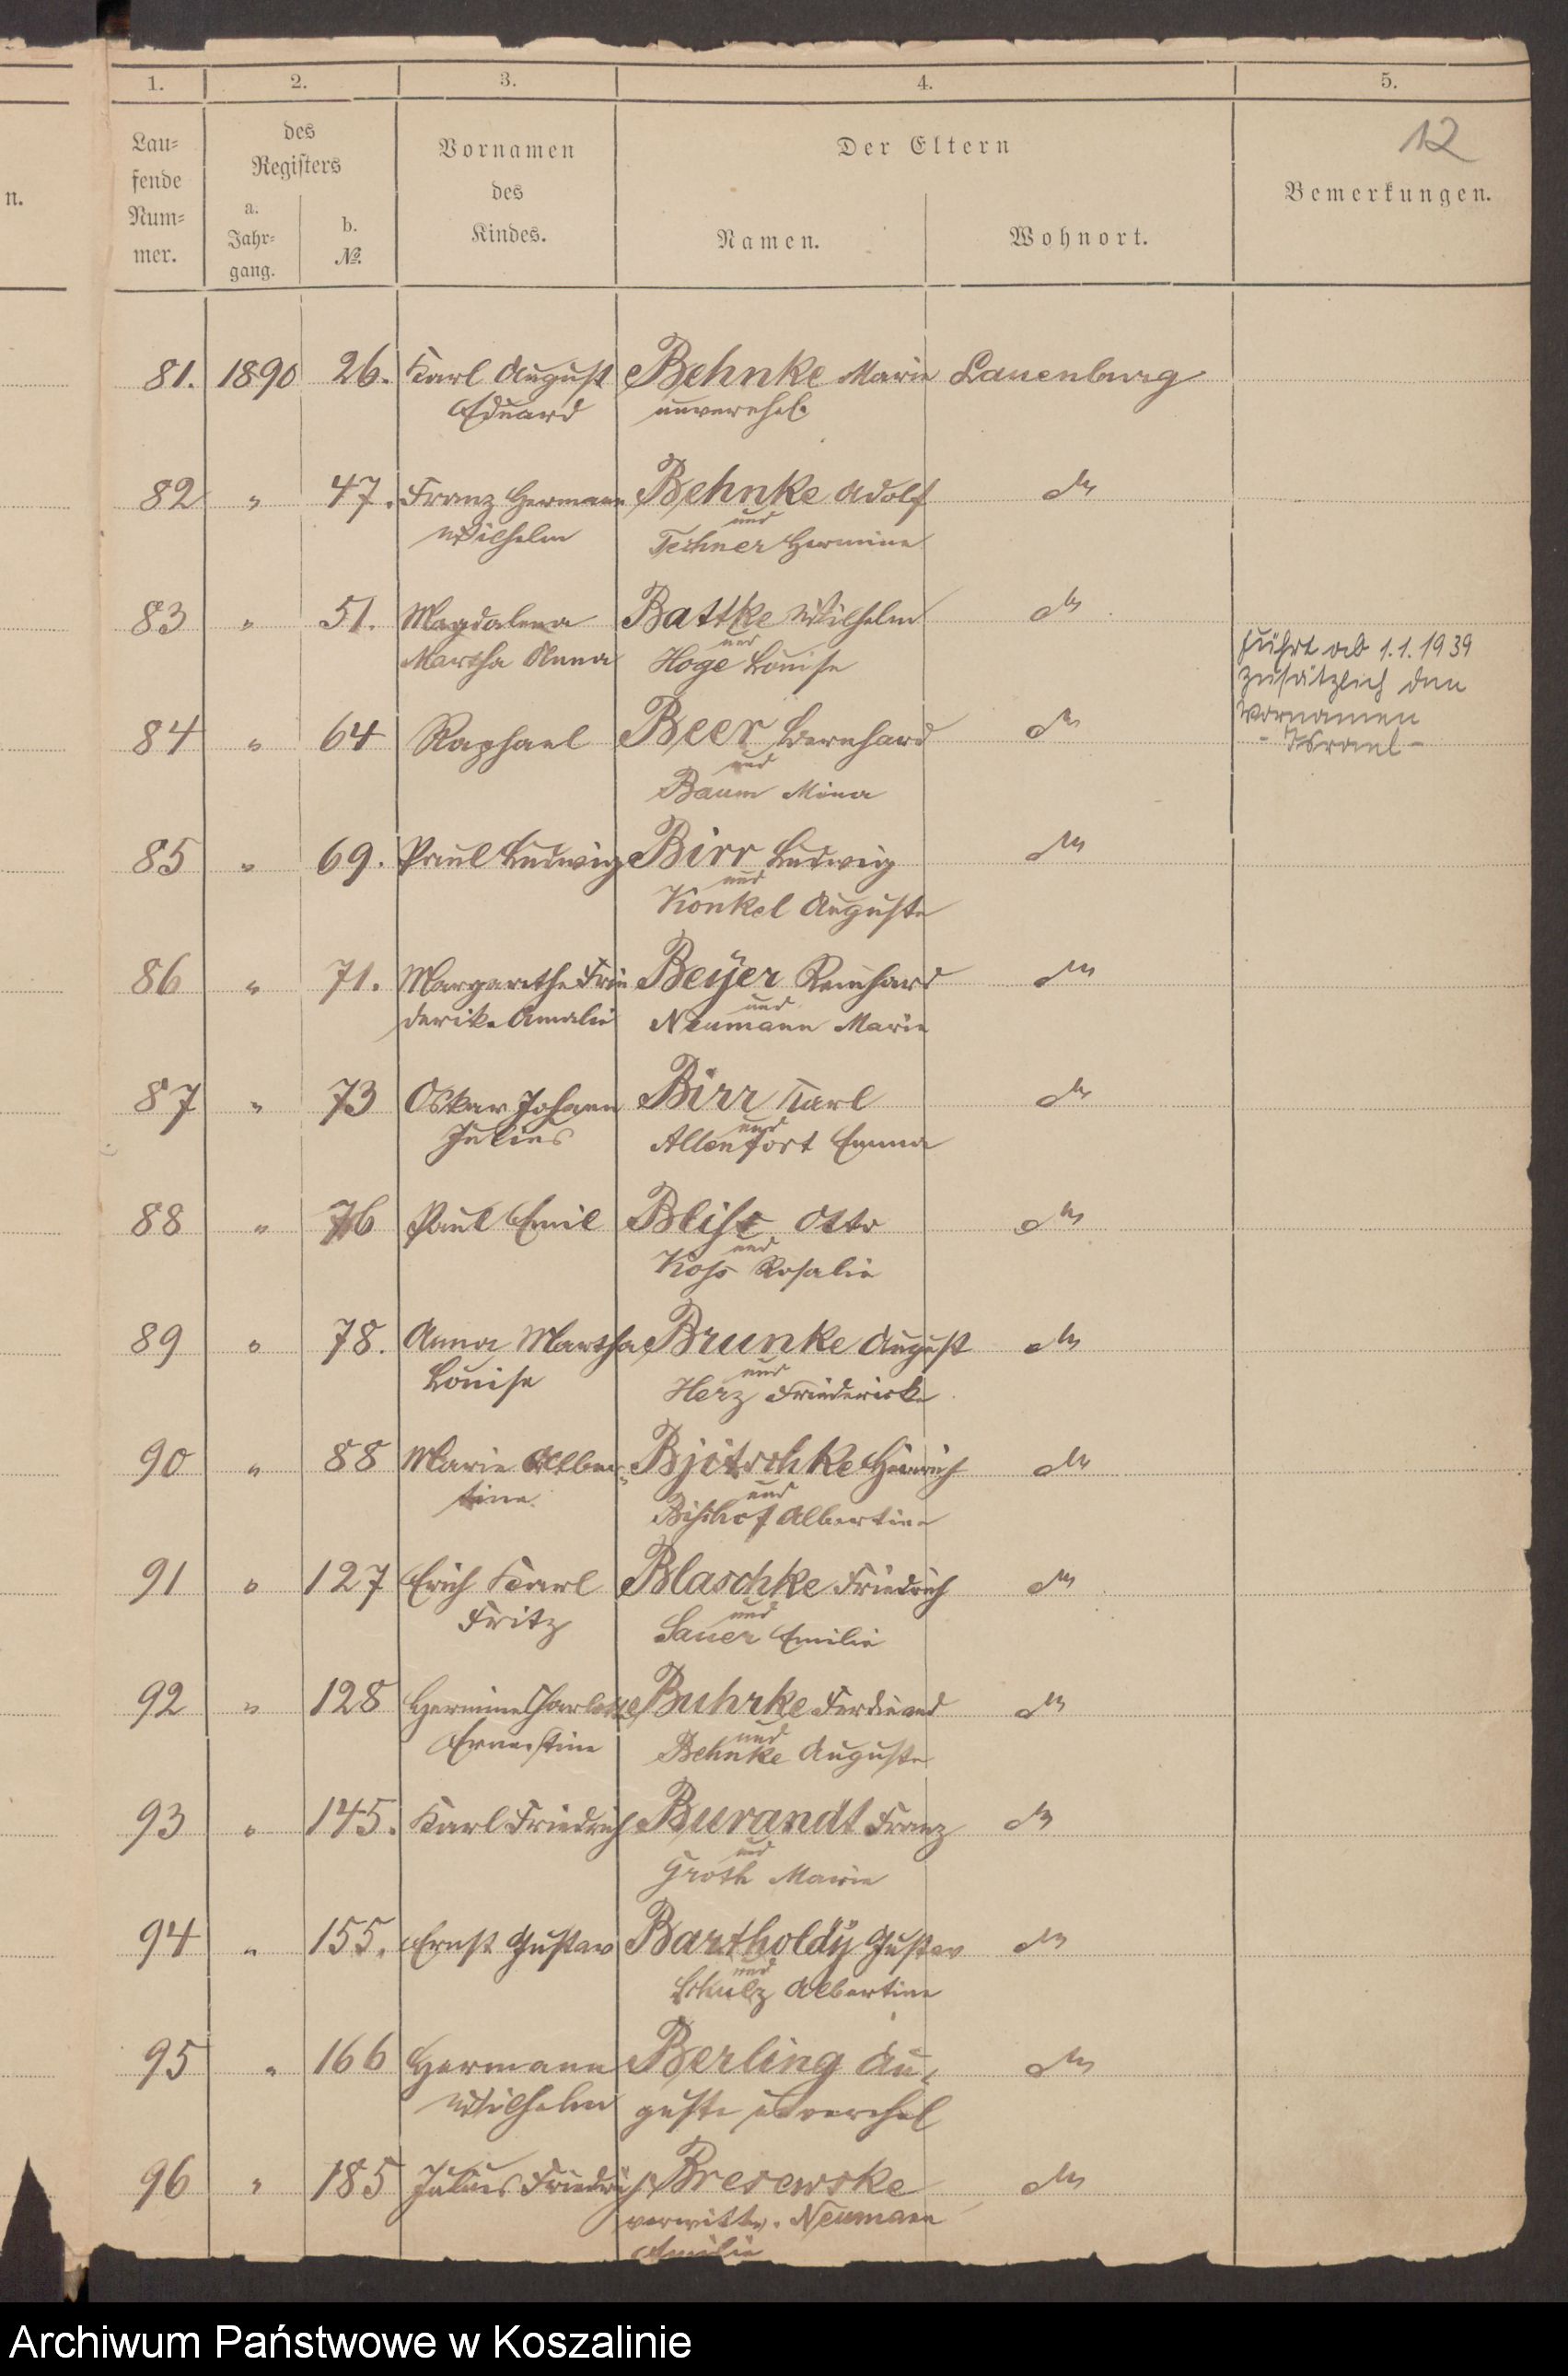 n.
1. 2. 3. 4. 5.
Lau=
fende
Num=
mer.
des
Registers
a.
Jahr=
gang.
b.
№.
Vornamen
des
Kindes.
Der Eltern
Namen. Wohnort.
12
Bemerkungen.
81. 1890 26. Karl August Behnke Marie Lauenburg
Eduard unverehel.
82 " 47. Franz Hermann Behnke Adolf do
und
Wilhelm Techner Hermine
83 " 51. Magdalena Battke Wilhelm do
und
Martha Anna Hoge Louise
führt ab 1.1.1939
zusätzlich den
Vornamen
- Israel -
84 " 64 Raphael Beer Bernhard do
und
Baum Mina
85 " 69. Paul Ludwig Birr Ludwig do
und
Konkel Auguste
86 " 71. Margarethe Frie Beyer Reinhard do
und
derike Amalie Neumann Marie
87 " 73 Oskar Johann Birr Karl do
und
Julius Allenfort Emma
88 " 76 Paul Emil Otto do
und
Koss Rosalie
89 " 78. Anna Martha Brunke August do
und
Louise Herz Friedericke
90 " 88 Marie Alber= Bjitschke Heinrich do
und
tine Bischof Albertine
91 " 127 Erich Karl Blaschke Friedrich do
und
Fritz Sauer Emilie
92 " 128 Hermine Charlotte Buhrke Ferdinand do
und
Ernestine Behnke Auguste
93 " 145. Karl Friedrich Burandt Franz do
und
Groth Marie
94 " 155. Ernst Gustav Bartholdy Gustav do
und
Schulz Albertine
95 " 166 Hermann Berling Au= do
Wilhelm guste unverehel
96 " 185 Julius Friedrich Bresewske do
verwittw. Neumann
Amilie
Archiwum Państwowe w Koszalinie